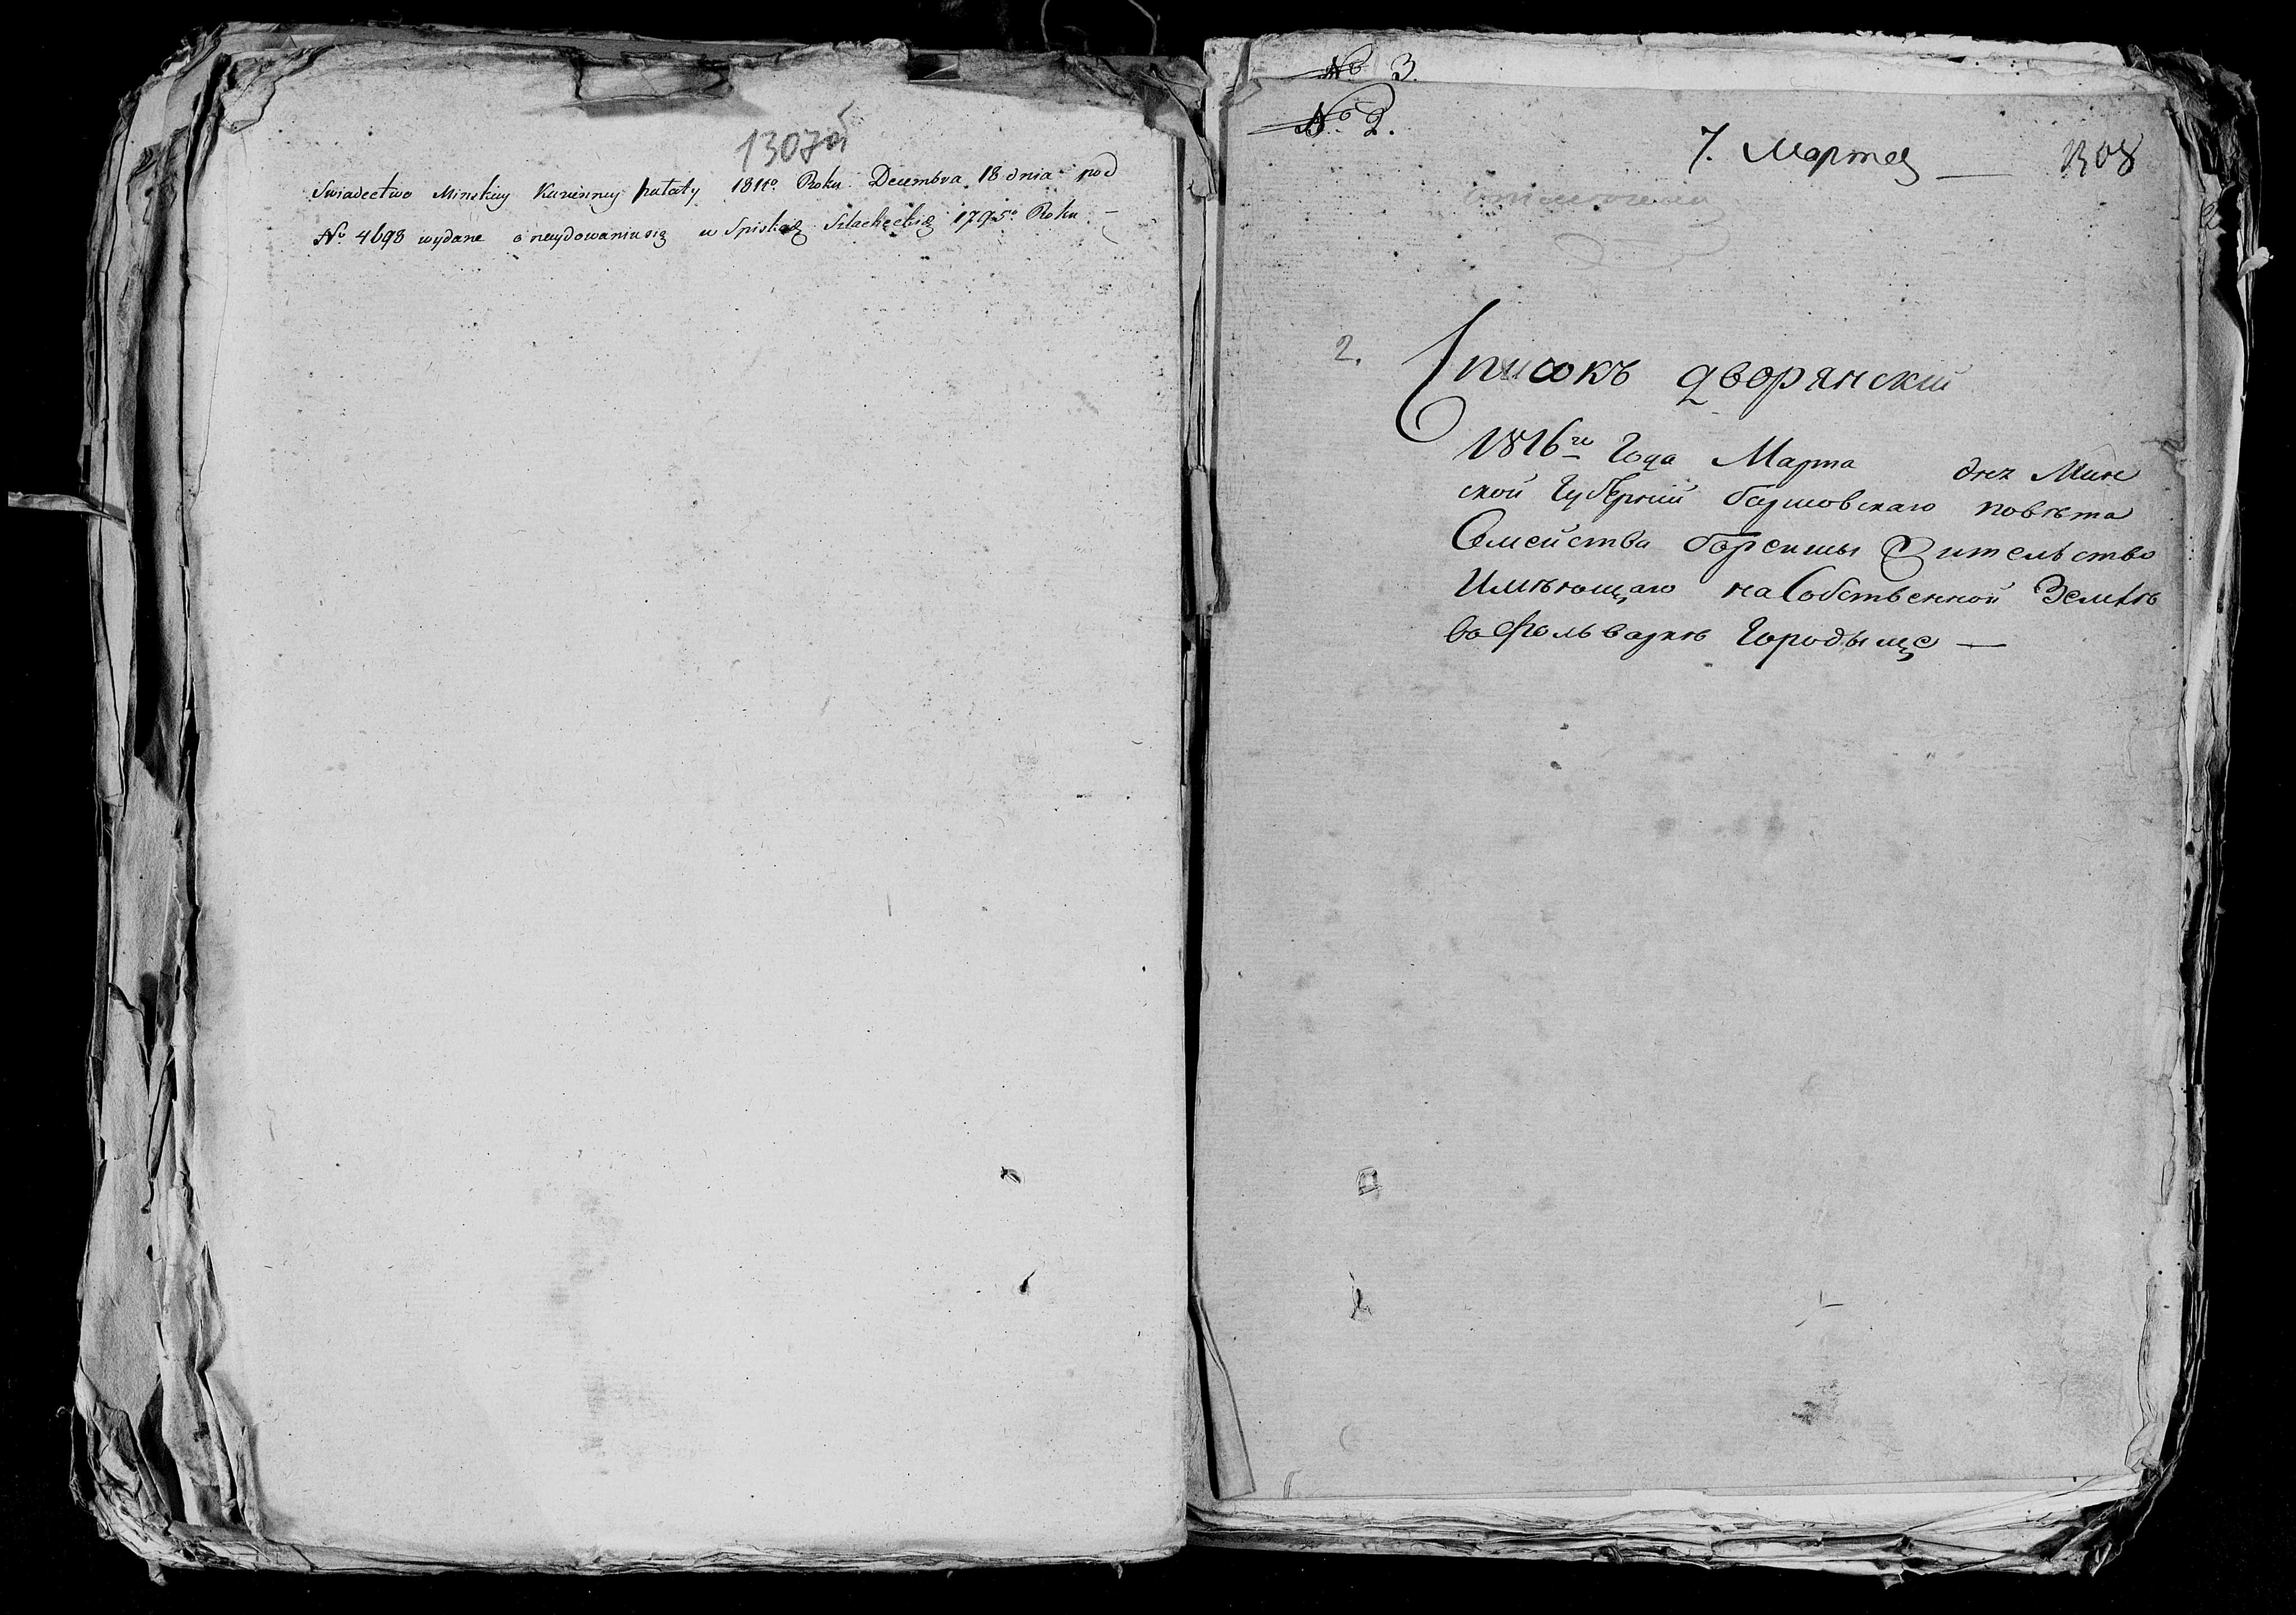 1307об
Swiadectwo Minskiey Kazienney pałaty 1811º Roku Decembra 18 dnia pod
Nº 4698 wydane o neydowaniu się w Spiskaz Szlacheckiz 1795º Roku
№ 3.
№ 2.
7. Марта 1308
2.
Списокъ дворянскій
1816го Года Марта дня Минс
кой Губерніи борисовскаго повѣта
Семейства борейшы Жительство
Имѣющаго на Собственной Землѣ
во Фольваркѣ Городыще —